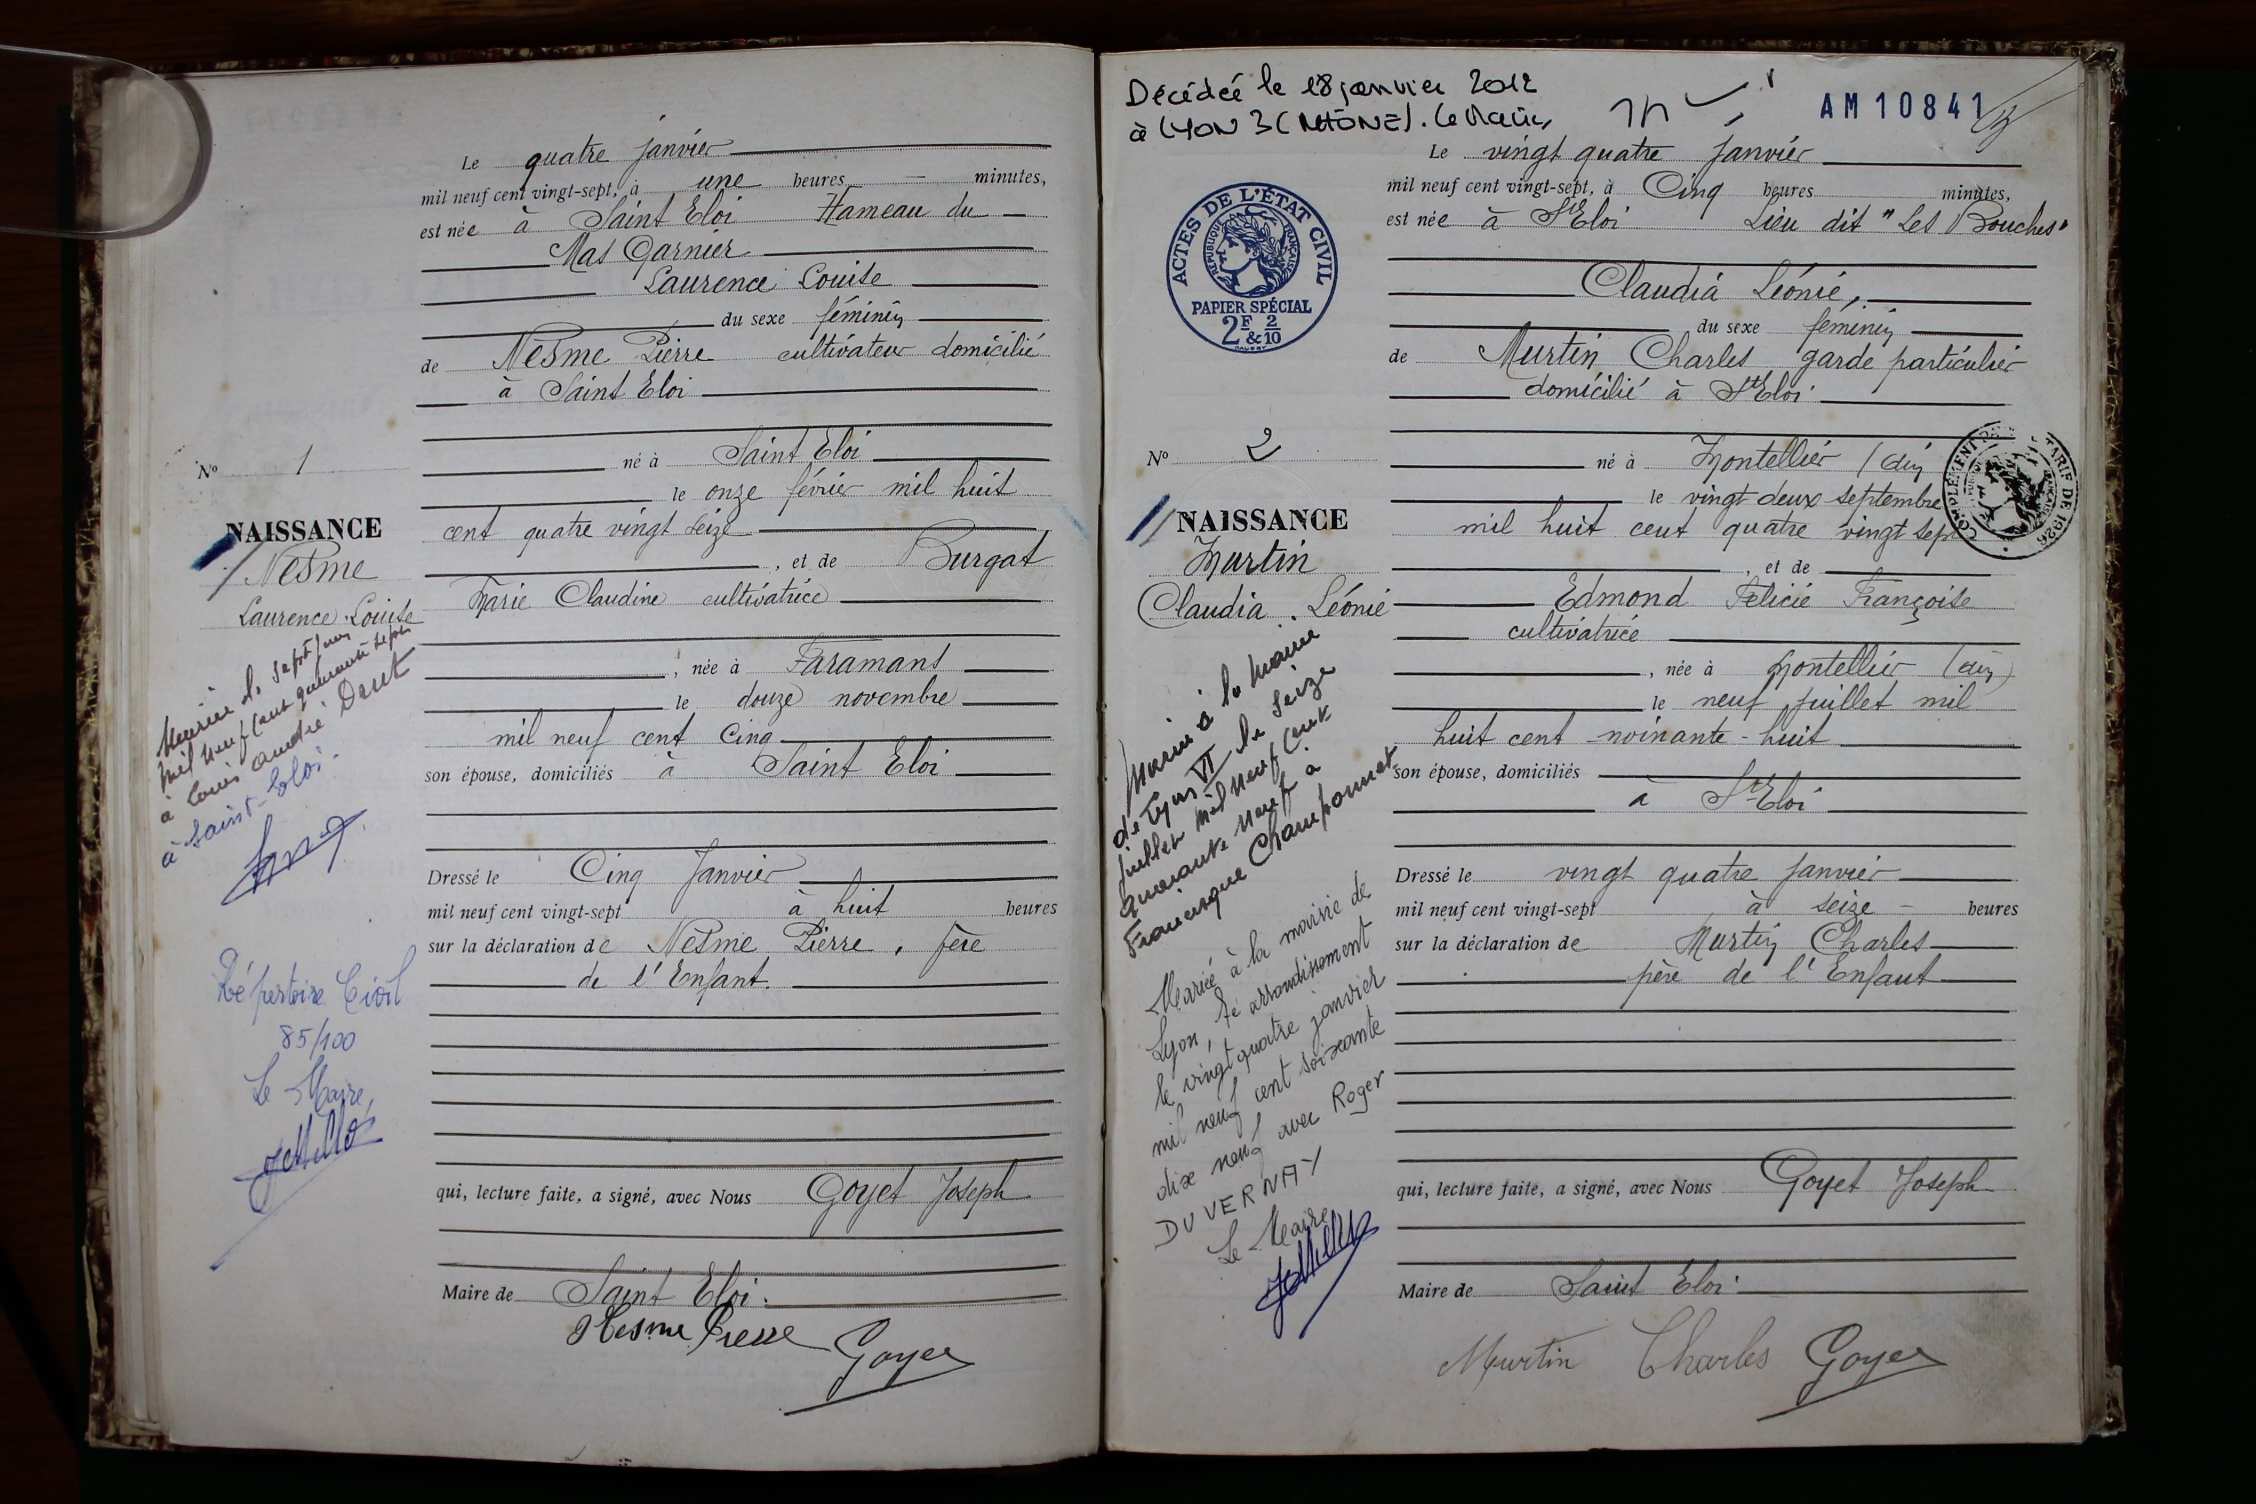 Le quatre janvier
mil neuf cent vingt-sept, à une heures — minutes,
est née à Saint Eloi Hameau du
Mas Garnier
Laurence Louise
du sexe féminin
de Nesme Pierre cultivateur domicilié
à Saint Eloi
né à Saint Eloi
le onze février mil huit
cent quatre vingt seize
, et de Burgat
Marie Claudine cultivatrice
, née à Faramans
le douze novembre
mil neuf cent cinq
son épouse, domiciliés à Saint Eloi
Dressé le Cinq Janvier
mil neuf cent vingt-sept à huit heures
sur la déclaration de Nesme Pierre, Père
de l'Enfant.
qui, lecture faite, a signé, avec Nous Goyet Joseph
Maire de Saint Eloi.
Nesme Pierre Goyet
No 1
NAISSANCE
Nesme
Laurence Louise
Mariée le sept juin
mil neuf cent quarante sept
à Louis André
à Saint-Eloi.
Répertoire Civil
85/100
Le Maire,
Décédée le 18 janvier 2012
à LYON 3 (RHÔNE). Le Maire,
AM10841
Le vingt quatre Janvier
mil neuf cent vingt-sept, à Cinq heures minutes,
est née à St Eloi Lieu dit "Les Bouches"
Claudia Léonie,
du sexe féminin
de Murtin Charles garde particulier
domicilié à St Eloi
né à Montellier (Ain
le vingt deux septembre
mil huit cent quatre vingt sept
, et de
Edmond Félicie Françoise
cultivatrice
, née à Montellier (Ain)
le neuf Juillet mil
huit cent noinante-huit
son épouse, domiciliés
à St Eloi
Dressé le vingt quatre Janvier
mil neuf cent vingt-sept à seize — heures
sur la déclaration de Murtin Charles
père de l'Enfant
qui, lecture faite, a signé, avec Nous Goyet Joseph
Maire de Saint Eloi
Murtin Charles Goyet
ACTES DE L'ÉTAT CIVIL
RÉPUBLIQUE FRANÇAISE
PAPIER SPÉCIAL
2F & 2/10
COMPLÉMENT DE TARIF DE 1926
No 2
NAISSANCE
Murtin
Claudia Léonie
Mariée à la mairie
de Lyon VI le seize
juillet mil neuf cent
quarante neuf à
Francisque Champonnet
Mariée à la mairie de
Lyon, 7e arrondissement
le vingt quatre janvier
mil neuf cent soixante
dix neuf avec Roger
DUVERNAY
Le Maire